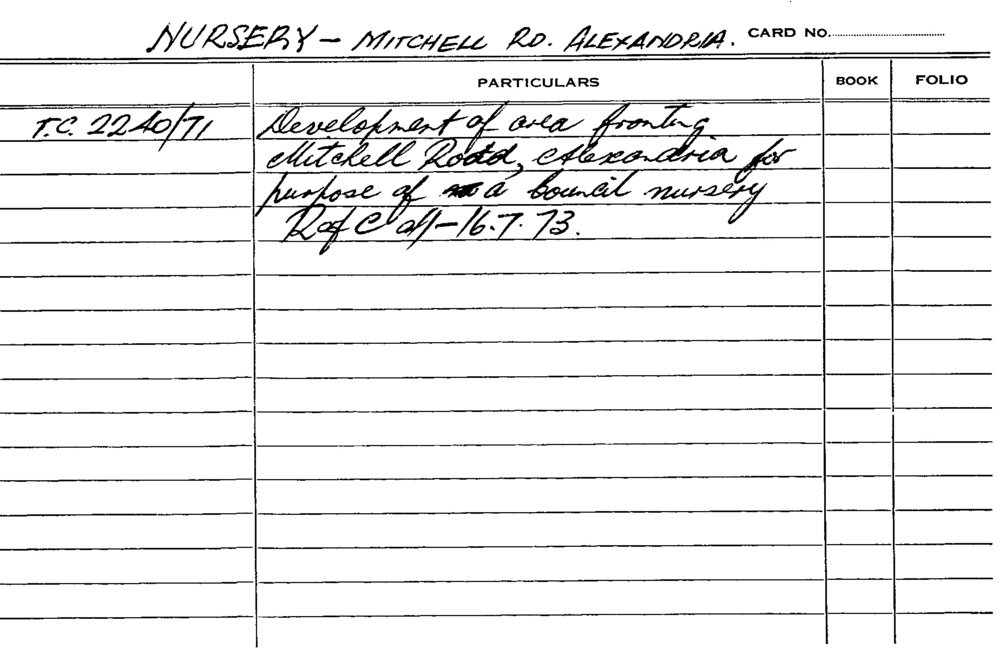 NURSERY – MITCHELL RD. ALEXANDRIA. CARD NO.
PARTICULARS BOOK FOLIO
T.C. 2240/71 Development of area fronting
Mitchell Road, Alexandria for
purpose of a Council nursery
Ref C of/– 16.7.73.